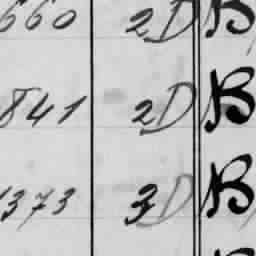 660 2D B
841 2D B
1373 3D B